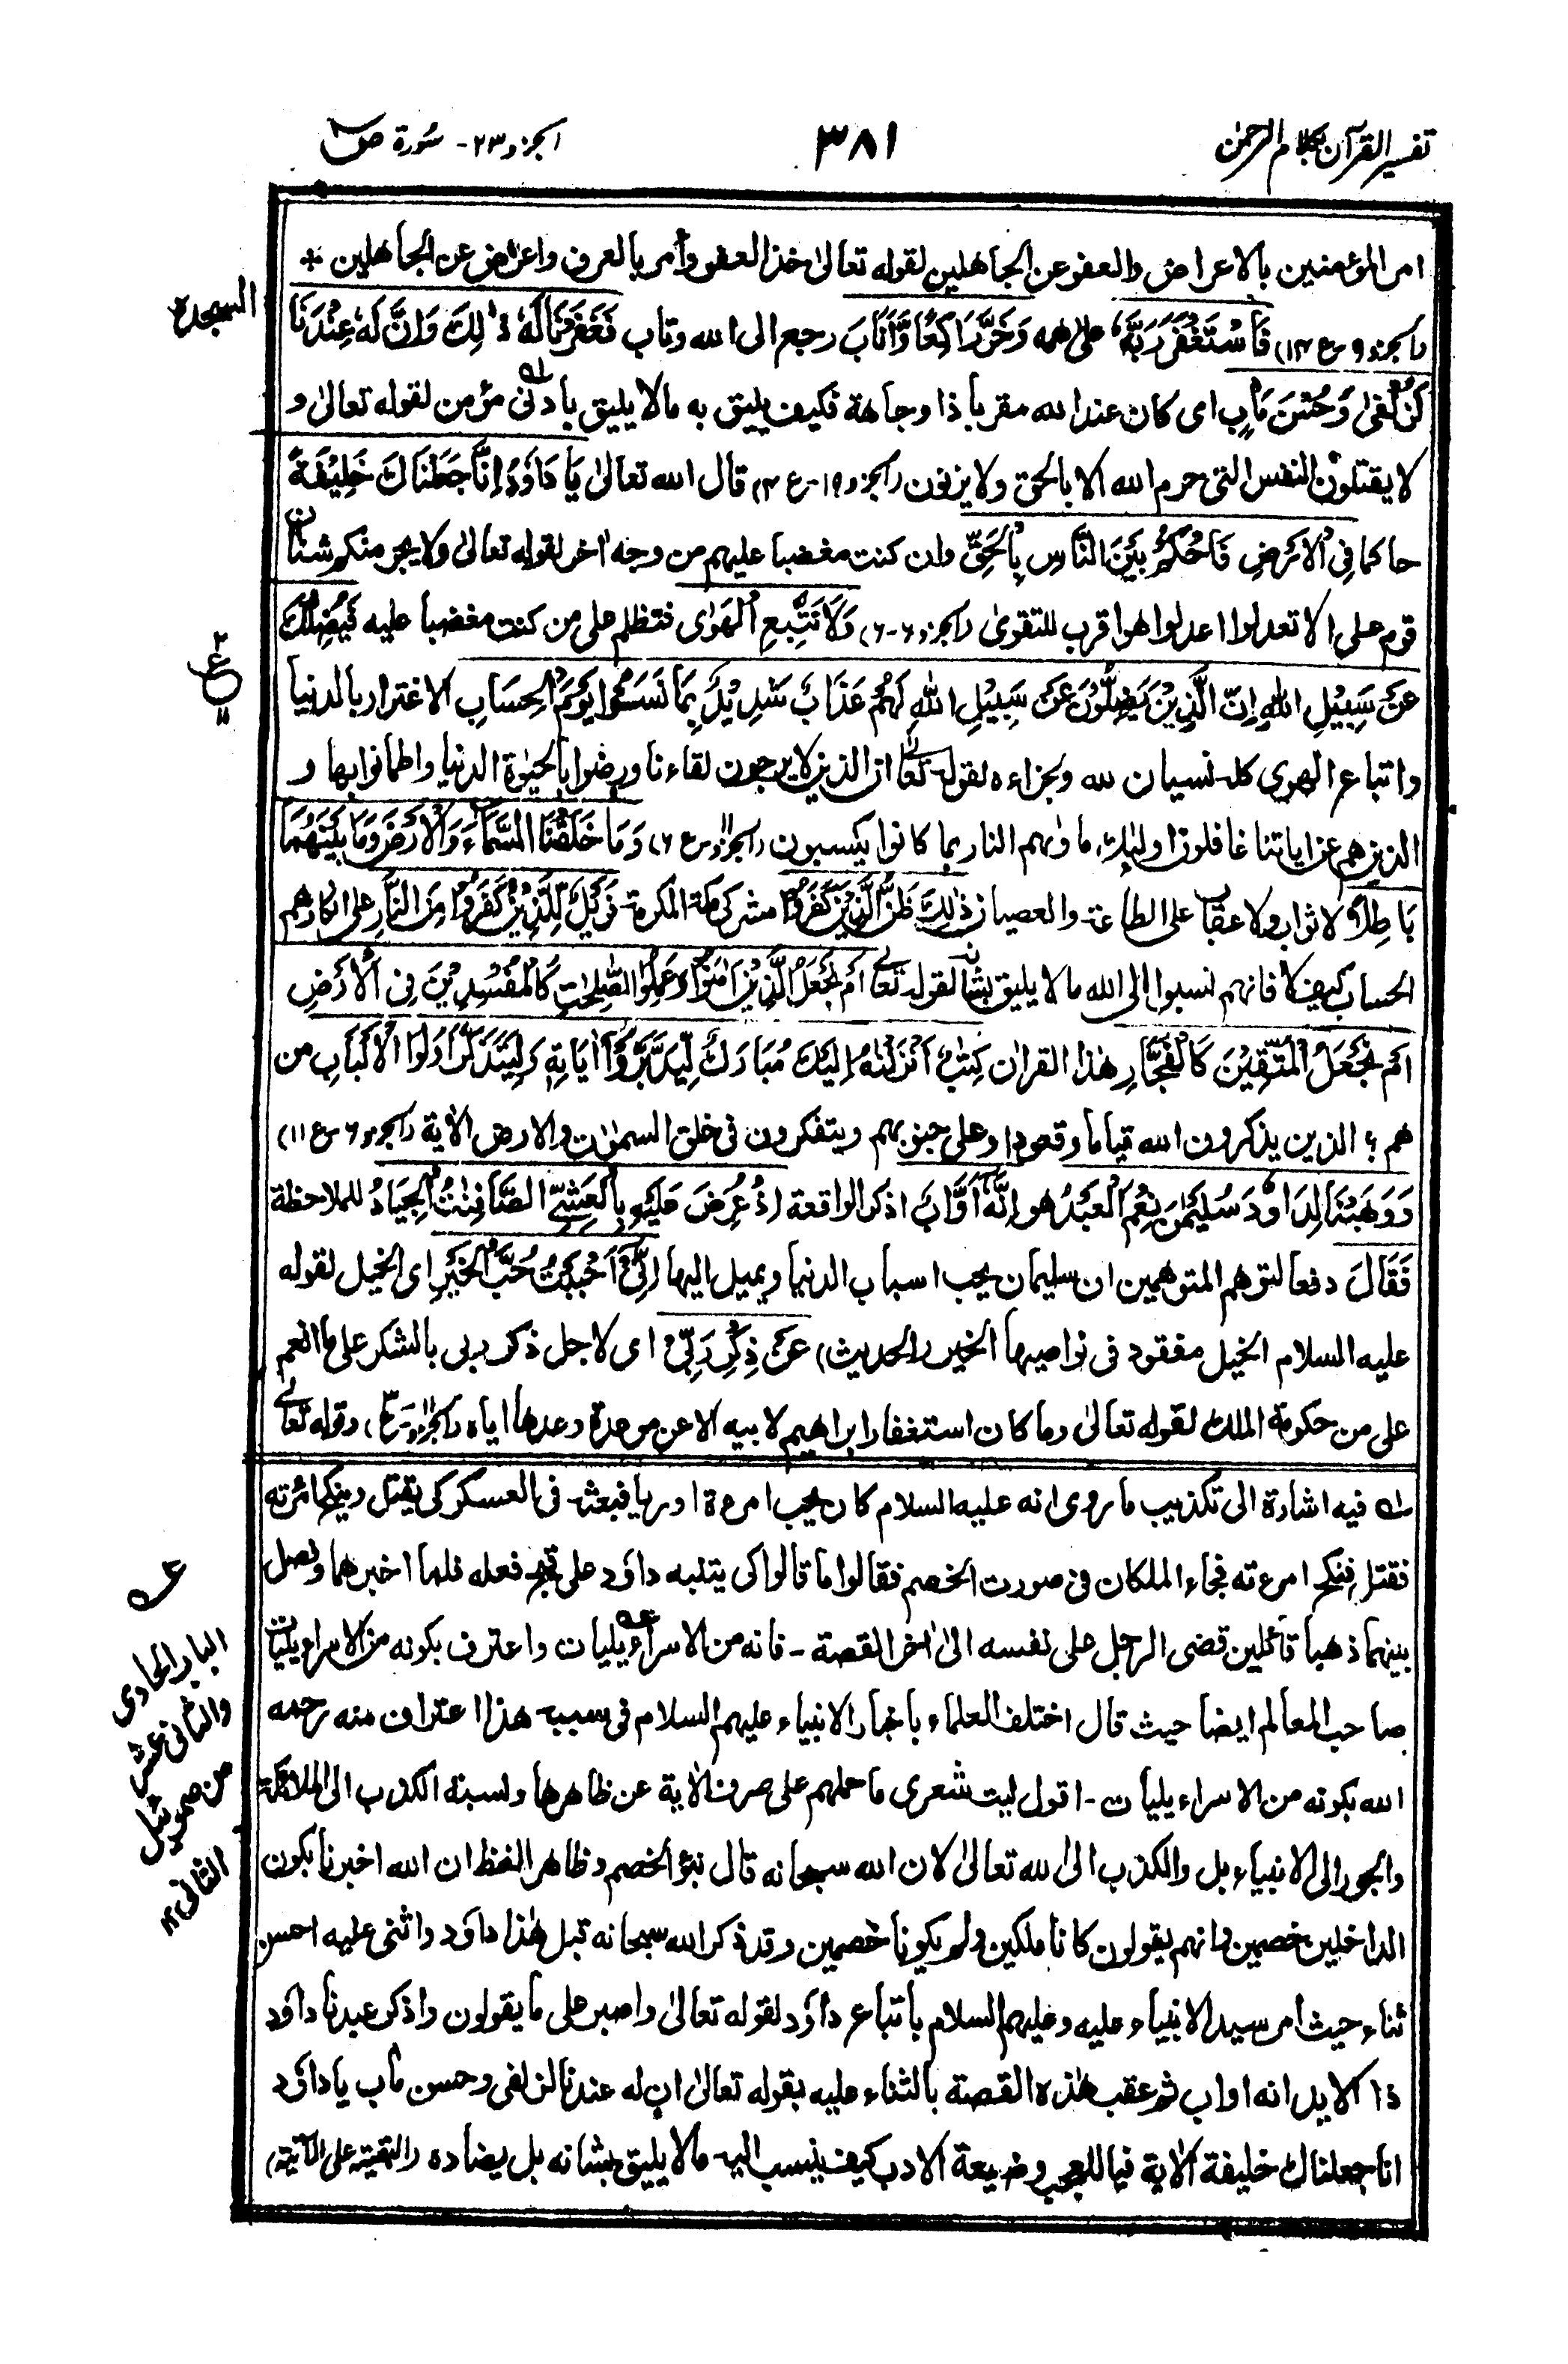 تفسير القرآن بكلام الرحمن
٣٨١
الجزء ٢٣- سُورة ص
امر المؤمنين بالاعراض والعفو عن الجاهلين لقوله تعالىٰ خذ العفو وأمر بالعرف واعرض عن الجاهلين
(الجزء ٩-ع ١٣) فَاسْتَغْفَرَ رَبَّهٗ على همه وَخَرَّ رَاكِعًا وَّاَنَابَ رجع الى الله وتاب فَغَفَرْنَا لَهٗ ذٰلِكَ وَاِنَّ لَهٗ عِنْدَنَا
السجدة
لَزُلْفٰى وَحُسْنَ مَاٰبٍ اى كان عند الله مقربا ذا وجاهة فكيف يليق به مالا يليق بادنى مؤمن لقوله تعالىٰ و
لا يقتلون النفس التى حرم الله الا بالحق ولا يزنون (الجزء ١٩-ع ٣) قال الله تعالىٰ يَا دَاوٗدُ اِنَّا جَعَلْنَاكَ خَلِيْفَةً
حاكما فِى الْاَرْضِ فَاحْكُمْ بَيْنَ النَّاسِ بِالْحَقِّ وان كنت مغضبا عليهم من وجه اٰخر لقوله تعالىٰ ولا يجرمنكم شناٰن
قوم على الا تعدلوا اعدلوا هوا قرب للتقوىٰ (الجزء ٦-٦) وَلَا تَتَّبِعِ الْهَوٰى فتظلم على من كنت مغضبا عليه فَيُضِلَّكَ
عَنْ سَبِيْلِ اللّٰهِ اِنَّ الَّذِيْنَ يَضِلُّوْنَ عَنْ سَبِيْلِ اللّٰهِ لَهُمْ عَذَابٌ شَدِيْدٌ بِمَا نَسُوْا يَوْمَ الْحِسَابِ الاغترار بالدنيا
٢
ع
١١
واتباع الهوى كله نسيان لله وجزاءه لقوله تعالىٰ ان الذين لا يرجون لقاءنا ورضوا بالحيوٰة الدنيا واطمانوا بها و
الذين هم عن اياتنا غافلون اولٰئك ماوٰىهم النار بما كانوا يكسبون (الجزء ١١-ع ٦) وَمَا خَلَقْنَا السَّمَاءَ وَالْاَرْضَ وَمَا بَيْنَهُمَا
بَاطِلًا لا ثواب ولا عقاب على الطاعة والعصيان ذٰلِكَ ظَنُّ الَّذِيْنَ كَفَرُوْا مشركى مكة المكرمة فَوَيْلٌ لِّلَّذِيْنَ كَفَرُوْا مِنَ النَّارِ على انكارهم
الحساب كيف لا فانهم نسبوا الى الله مالا يليق بشانه لقوله تعالىٰ اَمْ نَجْعَلُ الَّذِيْنَ اٰمَنُوْا وَعَمِلُوا الصّٰلِحٰتِ كَالْمُفْسِدِيْنَ فِى الْاَرْضِ
اَمْ نَجْعَلُ الْمُتَّقِيْنَ كَالْفُجَّارِ هٰذا القراٰن كِتٰبٌ اَنْزَلْنٰهُ اِلَيْكَ مُبَارَكٌ لِّيَدَّبَّرُوْٓا اٰيَاتِهٖ وَلِيَتَذَكَّرَ اُولُوا الْاَلْبَابِ من
هم؟ الذين يذكرون الله قياما وقعودا وعلى جنوبهم ويتفكرون فى خلق السمٰوٰت والارض الاٰية (الجزء ٤-ع ١١)
وَوَهَبْنَا لِدَاوٗدَ سُلَيْمٰنَ نِعْمَ الْعَبْدُ هو اِنَّهٗٓ اَوَّابٌ اذكر الواقعة اِذْ عُرِضَ عَلَيْهِ بِالْعَشِيِّ الصَّافِنٰتُ الْجِيَادُ للملاحظة
فَقَالَ دفعا لتوهم المتوهمين ان سليمان يحب اسباب الدنيا ويميل اليها اِنِّىْٓ اَحْبَبْتُ حُبَّ الْخَيْرِ اى الخيل لقوله
عليه السلام الخيل معقود فى نواصيها الخير (الحديث) عَنْ ذِكْرِ رَبِّىْ اى لاجل ذكر ربى بالشكر على ما انعم
على من حكومة الملك لقوله تعالىٰ وما كان استغفار ابراهيم لابيه الا عن موعدة وعدها اياه (الجزء ١١-ع ٣) وقوله تعالىٰ
له فيه اشارة الى تكذيب ما روى انه عليه السلام كان يحب امرءة اوريا فبعثه فى العسكر كى يقتل وينكح امرءته
فقتل فنكح امرءته فجاء الملكان فى صورت الخصم فقالوا ما قالوا كى يتنبه داوٗد على قبح فعله فلما اخبرهما وفصل
بينهما ذهبا قائلين قضى الرجل على نفسه الىٰ اٰخر القصة - فانه من الاسراءيليات واعترف بكونه من الاسراءيليات
صاحب المعالم ايضا حيث قال اختلف العلماء باخبار الانبياء عليهم السلام فى سببه هذا اعتراف منه رحمه
الله بكونه من الاسراءيليات - اقول ليت شعرى ما حملهم على صرف الاٰية عن ظاهرها ونسبة الكذب الى الملائكة
والجور الى الانبياء بل والكذب الى الله تعالىٰ لان الله سبحانه قال نبؤ الخصم وظاهر اللفظ ان الله اخبرنا بكون
الداخلين خصمين وانهم يقولون كانا ملكين ولم يكونا خصمين وقد ذكر الله سبحانه قبل هٰذا داوٗد واثنى عليه احسن
ثناء حيث امر سيد الانبياء عليه وعليهم السلام باتباع داوٗد لقوله تعالىٰ واصبر على ما يقولون واذكر عبدنا داوٗد
ذا الايد انه اواب ثم عقب هٰذه القصة بالثناء عليه بقوله تعالىٰ ان له عندنا لزلفى وحسن ماٰب يا داوٗد
انا جعلناك خليفة الاٰية فيا للعجب وضيعة الادب كيف ينسب اليه مالا يليق بشانه بل يضاده (البقية على الاٰتية)
عه
الباب الحادى
والثانى عشر
من صموئيل
الثانى ١٢